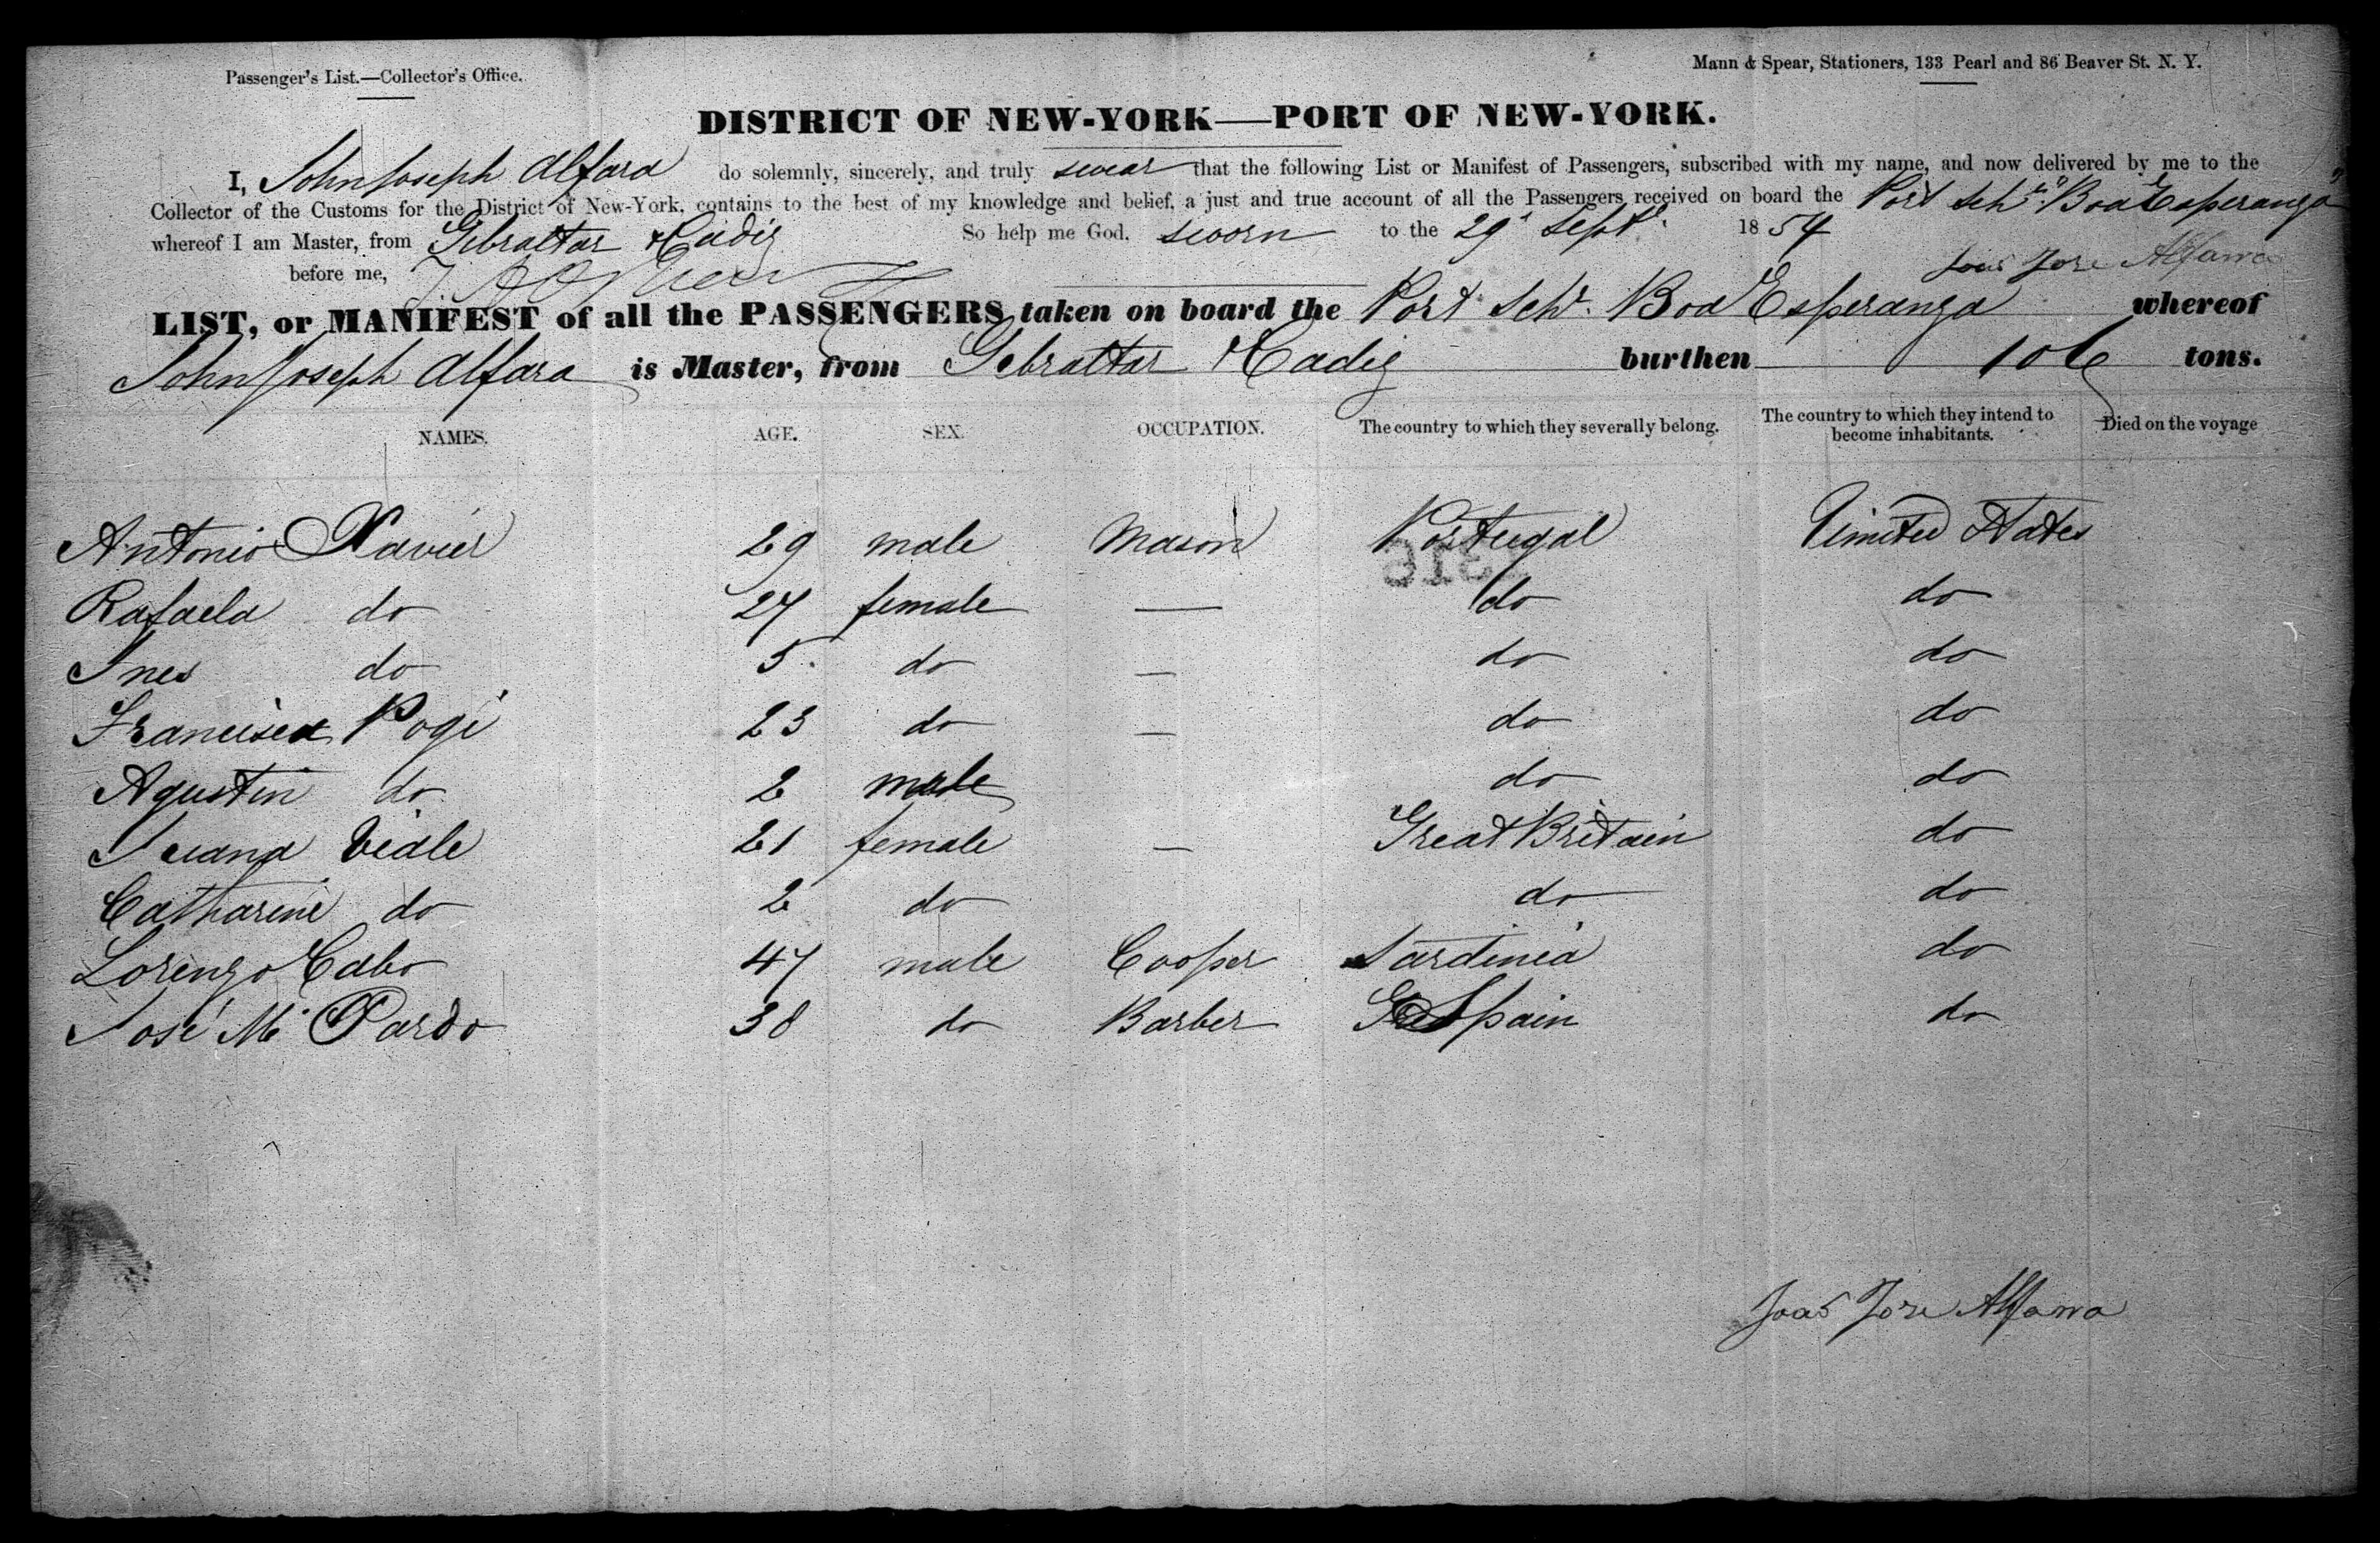 Passenger's List.—Collector's Office.
Mann & Spear, Stationers, 133 Pearl and 86 Beaver St. N. Y.
DISTRICT OF NEW-YORK—PORT OF NEW-YORK.
I, John Joseph Alfara do solemnly, sincerely, and truly swear that the following List or Manifest of Passengers, subscribed with my name, and now delivered by me to the
Collector of the Customs for the District of New-York, contains to the best of my knowledge and belief, a just and true account of all the Passengers received on board the Port Schr. "Boa Esperanza"
whereof I am Master, from Gibraltar & Cadiz So help me God. sworn to the 29 Sept. 1854
before me, Joaõ Jose Alfarra
LIST, or MANIFEST of all the PASSENGERS taken on board the Port Schr. Boa Esperanza whereof
John Joseph Alfara is Master, from Gibraltar & Cadiz burthen 106 tons.
NAMES. AGE. SEX. OCCUPATION. The country to which they severally belong. The country to which they intend to become inhabitants. Died on the voyage
Antonio Xavier 29 male Mason Portugal United States
Rafaela do 27 female — do do
Ines do 5 do — do do
Francisca Pogi 23 do — do do
Agustin do 2 male do do
Juana Viale 21 female — Great Britain do
Catharine do 2 do do do
Lorenzo Cabo 47 male Cooper Sardinia do
José Ma Pardo 38 do Barber Spain do
Joaõ Jose Alfarra